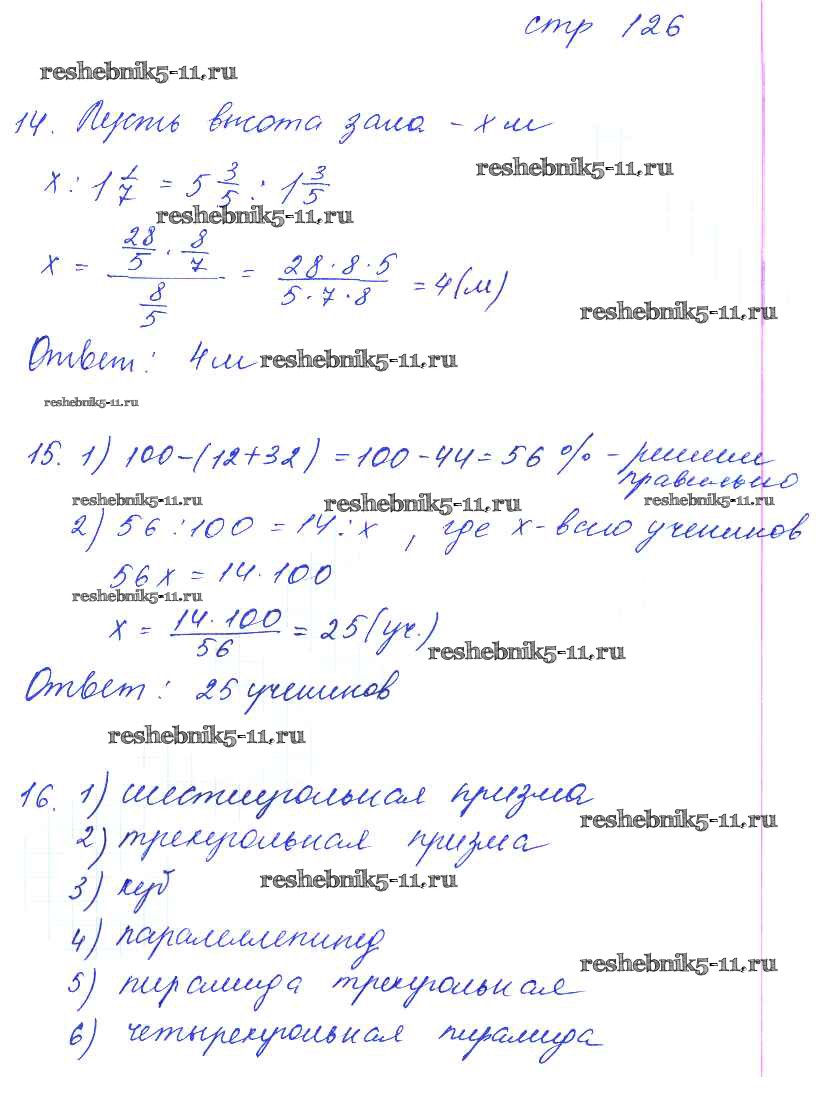 стр 126
reshebnik5-11.ru
14. Пусть высота зала – х м
reshebnik5-11.ru
x : 1 1/7 = 5 3/5 : 1 3/5
reshebnik5-11.ru
x = (28/5 · 8/7)/(8/5) = (28·8·5)/(5·7·8) = 4(м)
reshebnik5-11.ru
Ответ: 4м reshebnik5-11.ru
reshebnik5-11.ru
15. 1) 100–(12+32) = 100–44 = 56 % – решили
правильно
reshebnik5-11.ru reshebnik5-11.ru reshebnik5-11.ru
2) 56 : 100 = 14 : x , где х-всего учеников
56x = 14·100
reshebnik5-11.ru
x = (14·100)/56 = 25(уч.)
reshebnik5-11.ru
Ответ: 25 учеников
reshebnik5-11.ru
16. 1) шестиугольная призма
reshebnik5-11.ru
2) треугольная призма
3) куб reshebnik5-11.ru
4) параллелепипед
reshebnik5-11.ru
5) пирамида треугольная
6) четырехугольная пирамида